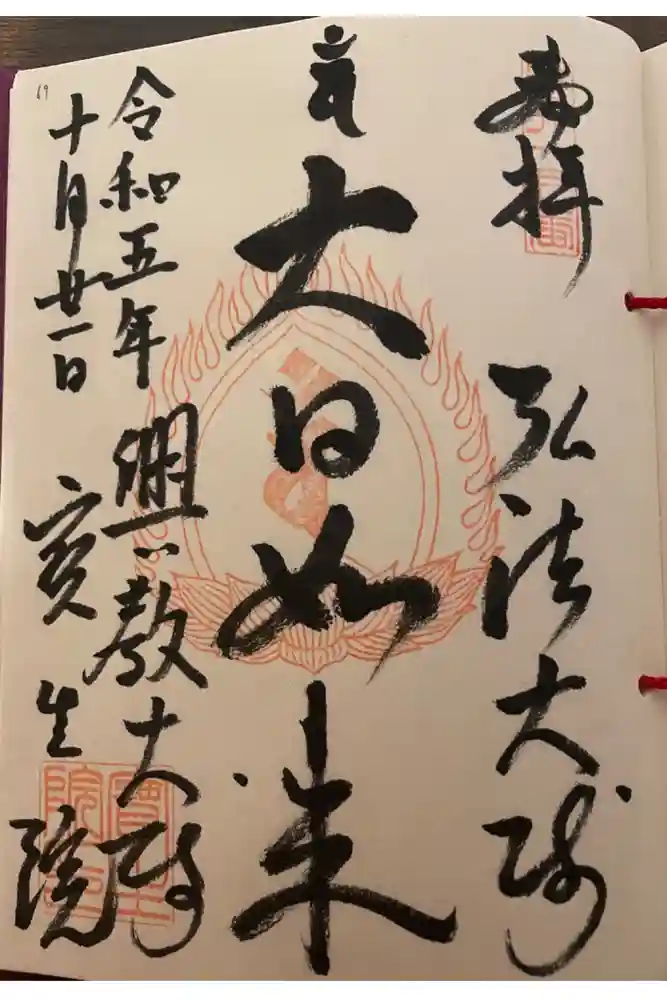 奉拝
弘法大師
大日如来
興教大師
令和五年
十月廿一日
宝生院